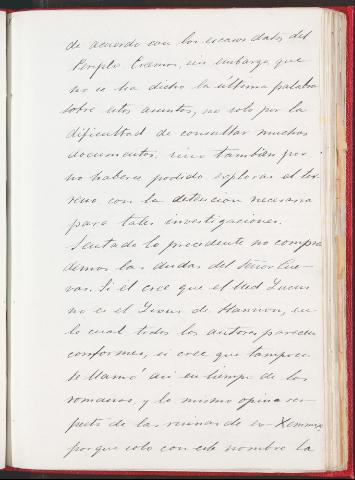 de acuerdo con los escasos datos del
Periplo. Creemos, sin embargo, que
no se ha dicho la última palabra
sobre estos asuntos, no solo por la
dificultad de consultar muchos
documentos, sino también por
no haberse podido explorar el ter-
reno con la detención necesaria
para tales investigaciones.
Sentado lo precedente no compren
demos las dudas del Señor Cue-
vas. Si el cree que el Uad Lucus
no es el Lixus de Hannon, en
lo cual todos los autores parecen
conformes, si cree que tampoco
se llamó así en tiempo de los
romanos, y lo mismo opina res-
pecto de las ruinas de
porque solo con este nombre la